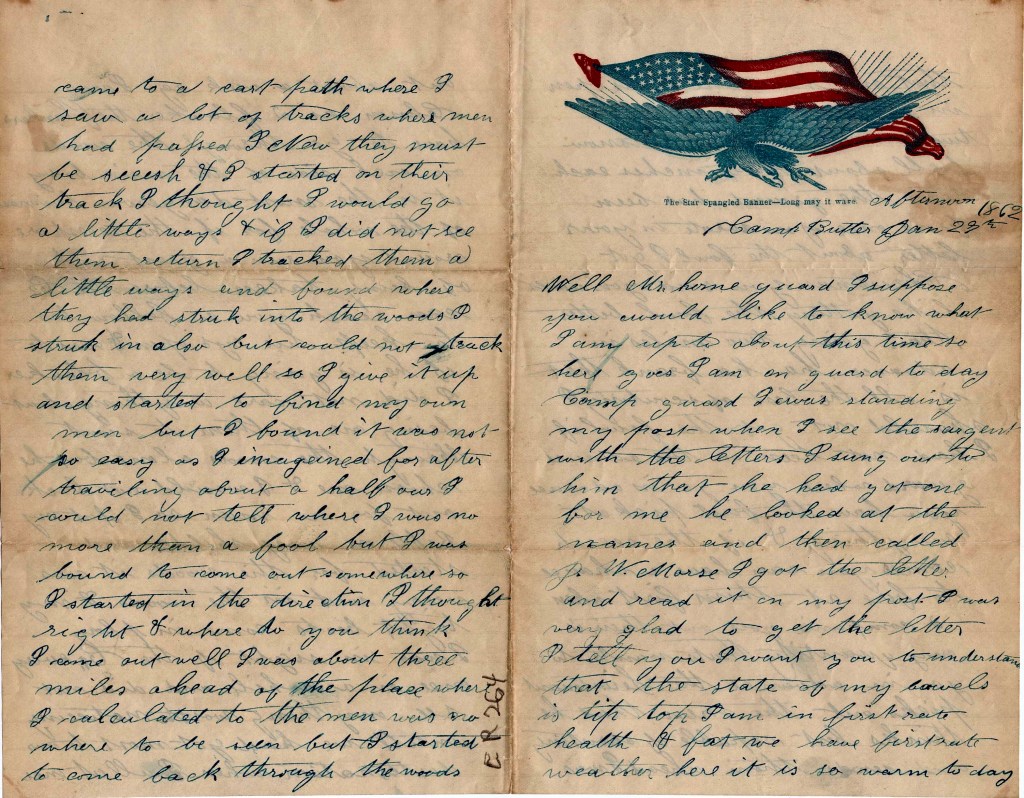 came to a cart path where I
saw a lot of tracks where men
had passed I New they must
be secesh & I started on their
track I thought I would go
a little ways & if I did not see
them return I tracked them a
little ways and found where
they had struk into the woods I
struk in also but could not track
them very well so I give it up
and started to find my own
men but I found it was not
so easy as I imageined for after
traviling about a half our I
could not tell where I was no
more than a fool but I was
bound to come out somewhere so
I started in the direction I thought
right & where do you think
I come out well I was about three
miles ahead of the place wher
I calculated to the men was no
where to be seen but I started
to come back through the woods
E R 264
The Star Spangled Banner—Long may it wave.
Afternoon
1862
Camp Butler Jan 29th
Well Mr. home guard I suppose
you would like to know what
I am up to about this time so
here goes I am on guard to day
Camp guard I was standing
my post when I see the sargent
with the letters I sung out to
him that he had got one
for me he looked at the
names and then called
W. Morse I got the letter
and read it on my post I was
very glad to get the letter
I tell you I want you to understand
that the state of my bowels
is tip top I am in first rate
health & fat we have first rate
weather here it is so warm to day